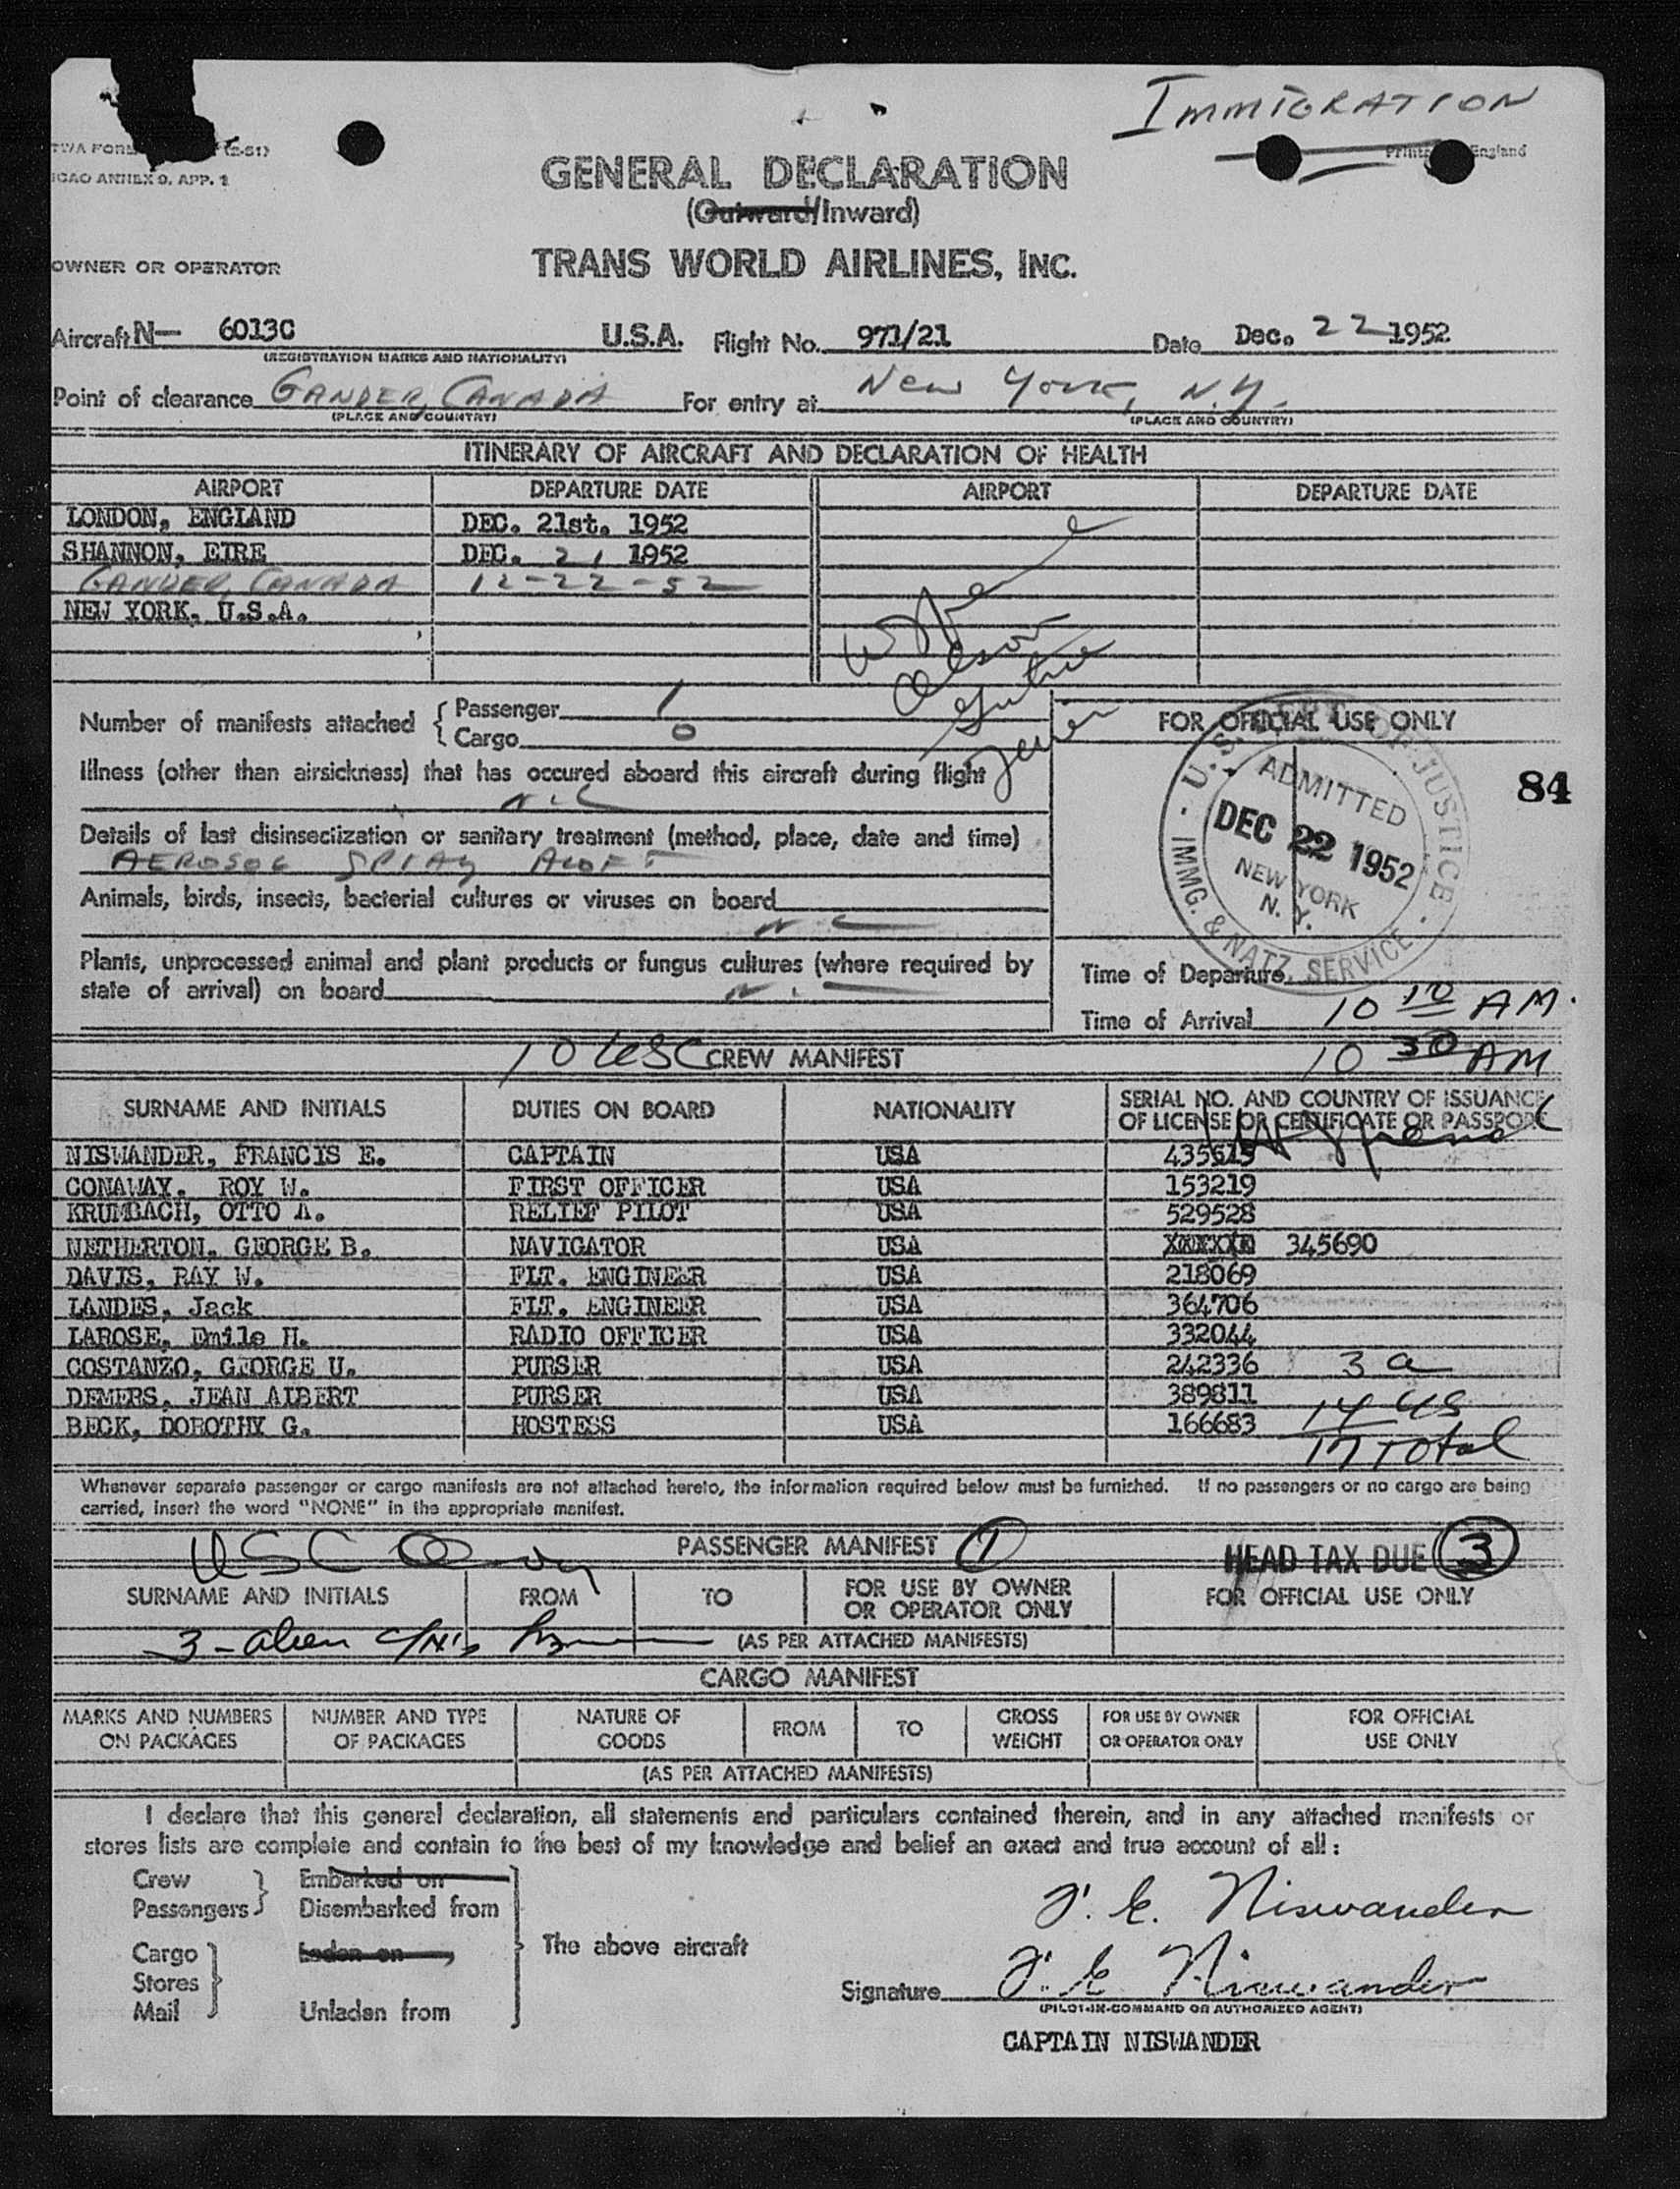 IMMIGRATION
TWA FORM (2-51)
ICAO ANNEX 9, APP. 1
Printed England
GENERAL DECLARATION
(Outward/Inward)
OWNER OR OPERATOR
TRANS WORLD AIRLINES, INC.
Aircraft N— 6013C U.S.A. Flight No. 971/21 Date Dec. 22 1952
(REGISTRATION MARKS AND NATIONALITY)
Point of clearance GANDER, CANADA For entry at New York, N.Y.
(PLACE AND COUNTRY) (PLACE AND COUNTRY)
ITINERARY OF AIRCRAFT AND DECLARATION OF HEALTH
AIRPORT DEPARTURE DATE AIRPORT DEPARTURE DATE
LONDON, ENGLAND DEC. 21st. 1952
SHANNON, EIRE DEC. 21 1952
GANDER, CANADA 12-22-52
NEW YORK, U.S.A.
Olson
Number of manifests attached { Passenger 1
Cargo 0
FOR OFFICIAL USE ONLY
Illness (other than airsickness) that has occured aboard this aircraft during flight
NIL
84
U.S. DEPT. OF JUSTICE
ADMITTED
DEC 22 1952
NEW YORK
N. Y.
IMMG. & NATZ. SERVICE
Details of last disinsectization or sanitary treatment (method, place, date and time)
AEROSOL SPRAY ALOFT
Animals, birds, insects, bacterial cultures or viruses on board
NIL
Plants, unprocessed animal and plant products or fungus cultures (where required by
state of arrival) on board NIL
Time of Departure
Time of Arrival 10 10 AM.
10 USC CREW MANIFEST 10 30 AM
SURNAME AND INITIALS DUTIES ON BOARD NATIONALITY SERIAL NO. AND COUNTRY OF ISSUANCE
OF LICENSE OR CERTIFICATE OR PASSPORT
NISWANDER, FRANCIS E. CAPTAIN USA 435615
CONAWAY, ROY W. FIRST OFFICER USA 153219
KRUMBACH, OTTO A. RELIEF PILOT USA 529528
NETHERTON, GEORGE B. NAVIGATOR USA XXXXXX 345690
DAVIS, RAY W. FLT. ENGINEER USA 218069
LANDES, Jack FLT. ENGINEER USA 364706
LAROSE, Emile H. RADIO OFFICER USA 332044
COSTANZO, GEORGE U. PURSER USA 242336 3 a
DEMERS, JEAN ALBERT PURSER USA 389811 14 US
BECK, DOROTHY G. HOSTESS USA 166683 17 Total
Whenever separate passenger or cargo manifests are not attached hereto, the information required below must be furnished. If no passengers or no cargo are being
carried, insert the word "NONE" in the appropriate manifest.
USC PASSENGER MANIFEST 1 HEAD TAX DUE 3
SURNAME AND INITIALS FROM TO FOR USE BY OWNER
OR OPERATOR ONLY FOR OFFICIAL USE ONLY
3 - alien (AS PER ATTACHED MANIFESTS)
CARGO MANIFEST
MARKS AND NUMBERS
ON PACKAGES NUMBER AND TYPE
OF PACKAGES NATURE OF
GOODS FROM TO GROSS
WEIGHT FOR USE BY OWNER
OR OPERATOR ONLY FOR OFFICIAL
USE ONLY
(AS PER ATTACHED MANIFESTS)
I declare that this general declaration, all statements and particulars contained therein, and in any attached manifests or
stores lists are complete and contain to the best of my knowledge and belief an exact and true account of all :
Crew Embarked on
Passengers Disembarked from
F. E. Niswander
Cargo Laden on
The above aircraft
Stores
Mail Unladen from
Signature F. E. Niswander
(PILOT-IN-COMMAND OR AUTHORIZED AGENT)
CAPTAIN NISWANDER